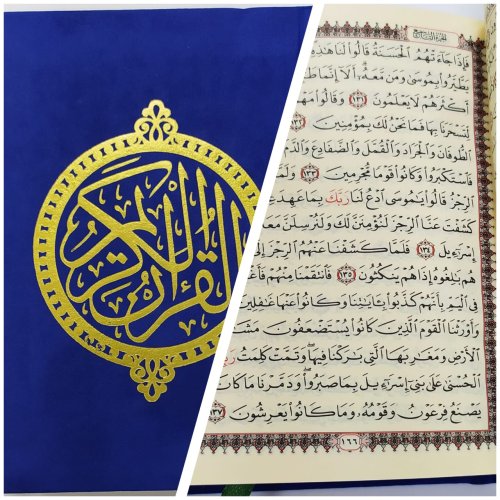 القرآن الكريم
فَإِذَا جَآءَتْهُمُ ٱلْحَسَنَةُ قَالُوا۟ لَنَا هَـٰذِهِۦ
يَطَّيَّرُوا۟ بِمُوسَىٰ وَمَن مَّعَهُۥٓ أَلَآ إِنَّمَا
أَكْثَرَهُمْ لَا يَعْلَمُونَ ١٣١ وَقَالُوا۟
لِّتَسْحَرَنَا بِهَا فَمَا نَحْنُ لَكَ بِمُؤْمِنِينَ ١٣٢
ٱلطُّوفَانَ وَٱلْجَرَادَ وَٱلْقُمَّلَ وَٱلضَّفَادِعَ وَٱلدَّمَ
فَٱسْتَكْبَرُوا۟ وَكَانُوا۟ قَوْمًا مُّجْرِمِينَ ١٣٣
ٱلرِّجْزُ قَالُوا۟ يَـٰمُوسَى ٱدْعُ لَنَا رَبَّكَ بِمَا عَهِدَ
كَشَفْتَ عَنَّا ٱلرِّجْزَ لَنُؤْمِنَنَّ لَكَ وَلَنُرْسِلَنَّ
إِسْرَٰٓءِيلَ ١٣٤ فَلَمَّا كَشَفْنَا عَنْهُمُ ٱلرِّجْزَ
هُم بَـٰلِغُوهُ إِذَا هُمْ يَنكُثُونَ ١٣٥ فَٱنتَقَمْنَا مِنْهُمْ
فِى ٱلْيَمِّ بِأَنَّهُمْ كَذَّبُوا۟ بِـَٔايَـٰتِنَا وَكَانُوا۟ عَنْهَا غَـٰفِلِينَ
وَأَوْرَثْنَا ٱلْقَوْمَ ٱلَّذِينَ كَانُوا۟ يُسْتَضْعَفُونَ
ٱلْأَرْضِ وَمَغَـٰرِبَهَا ٱلَّتِى بَـٰرَكْنَا فِيهَا وَتَمَّتْ كَلِمَتُ
ٱلْحُسْنَىٰ عَلَىٰ بَنِىٓ إِسْرَٰٓءِيلَ بِمَا صَبَرُوا۟ وَدَمَّرْنَا مَا كَانَ
يَصْنَعُ فِرْعَوْنُ وَقَوْمُهُۥ وَمَا كَانُوا۟ يَعْرِشُونَ ١٣٧
١٦٦